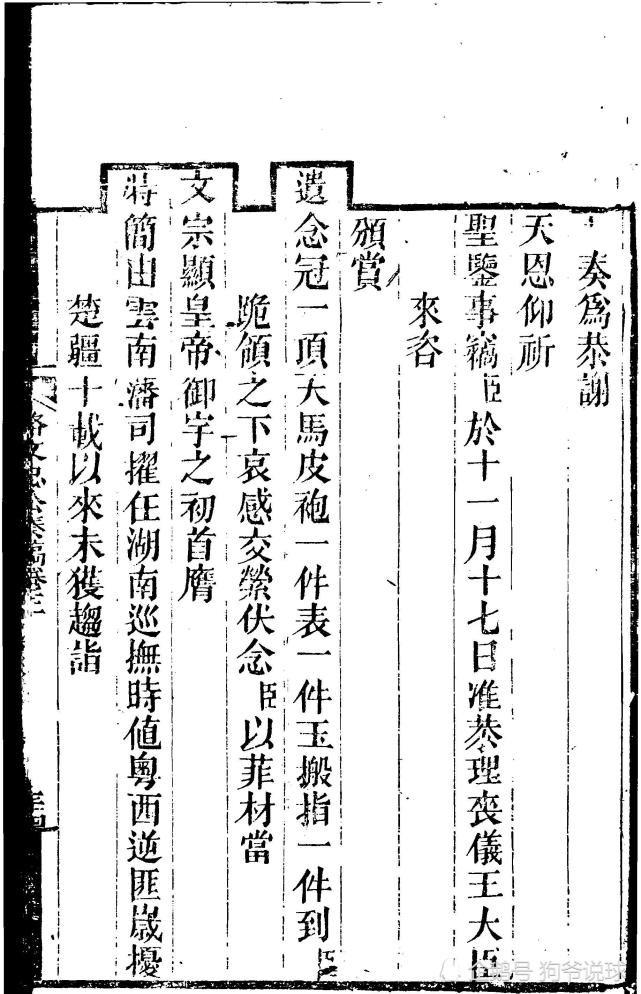 奏爲恭謝
天恩仰祈
聖鑒事竊臣於十一月十七日准恭理喪儀王大臣
來咨
頒賞
遺念冠一項大馬皮袍一件表一件玉搬指一件到臣
跪領之下哀感交縈伏念臣以菲材當
文宗顯皇帝御宇之初首膺
特簡由雲南藩司擢任湖南巡撫時値粵西逆匪嵗擾
楚疆十載以來未獲趨詣
駱文忠公奏稿卷
狗爷说球